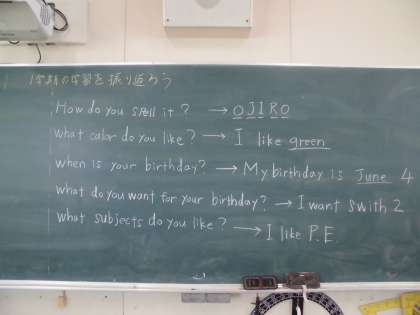 1学期の学習を振り返ろう
How do you spell it? → OJIRO
what color do you like? → I like green
when is your birthday? → My birthday is June 4
what do you want for your birthday? → I want swith 2
what subjects do you like? → I like P.E.